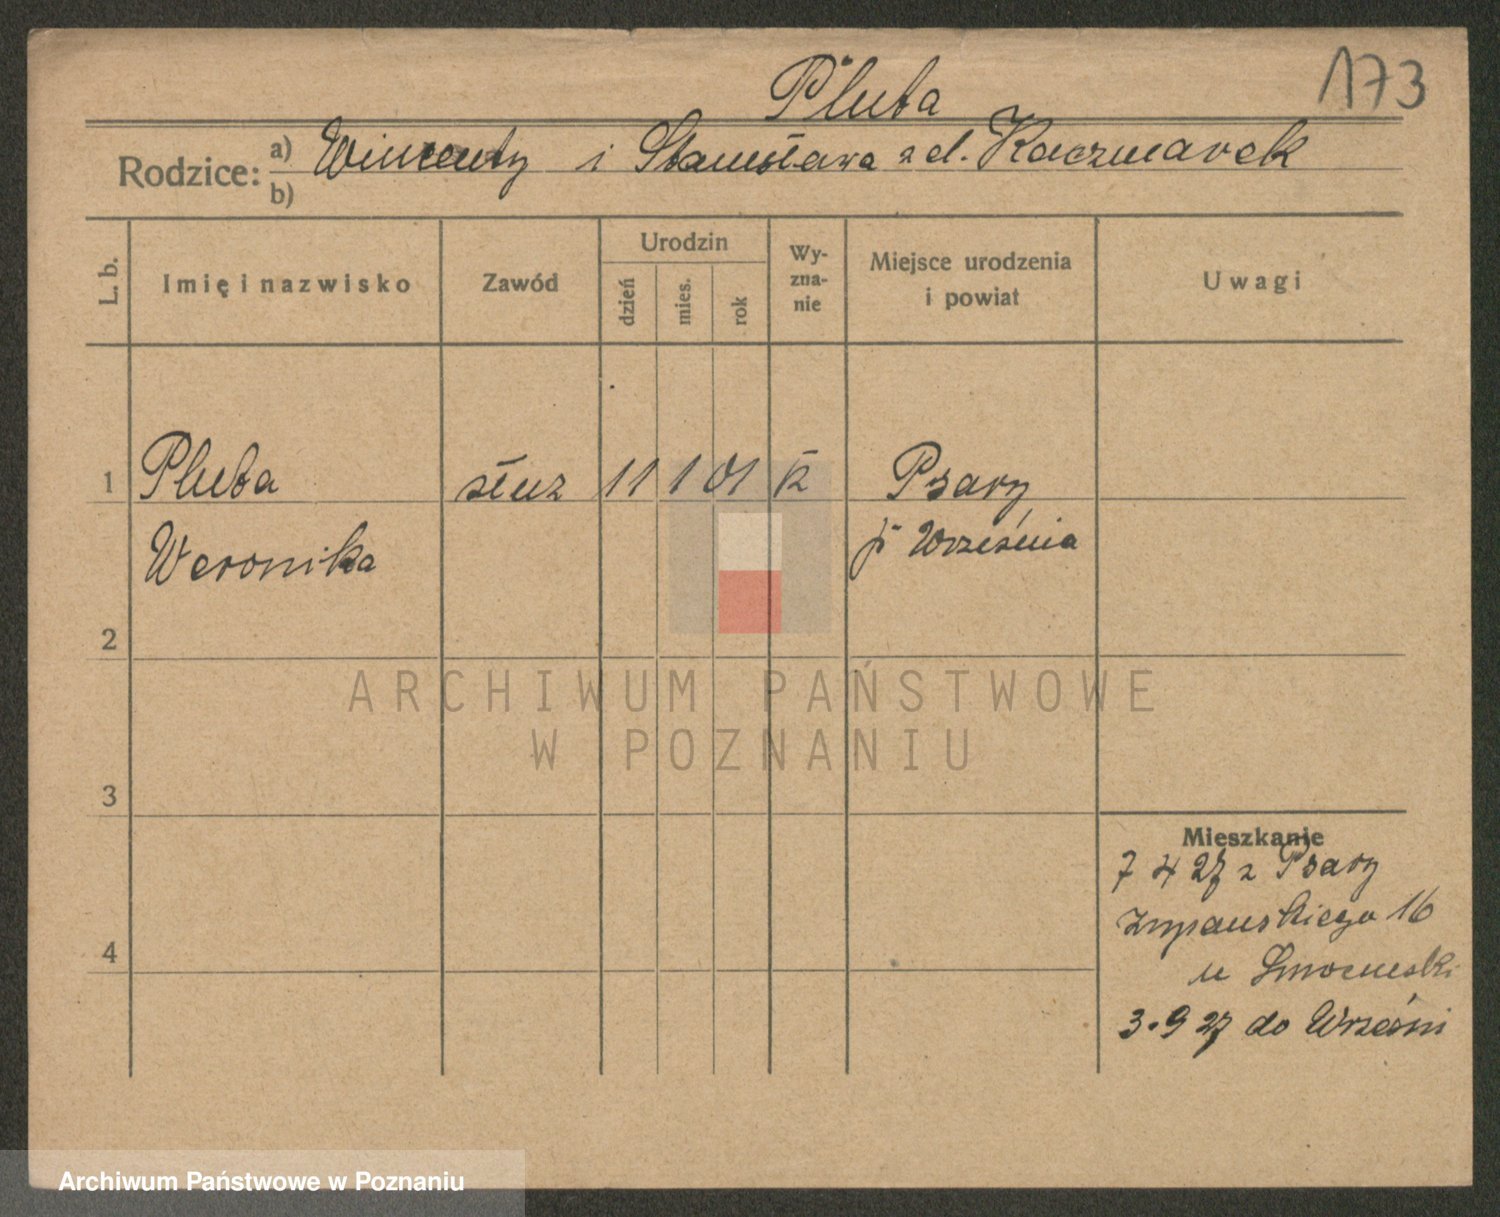 173
Pluta
Rodzice: a) Wincenty i Stanisława z d. Kaczmarek
b)
L. b. Imię i nazwisko Zawód Urodzin dzień mies. rok Wy-zna-nie Miejsce urodzenia i powiat Uwagi
1 Pluta służ 11 1 01 k Psary
Weronika p Września
2
3
4
Mieszkanie
7 4 27 z Psary
16
u
3.9 27 do Wrześni
ARCHIWUM PAŃSTWOWE
W POZNANIU
Archiwum Państwowe w Poznaniu